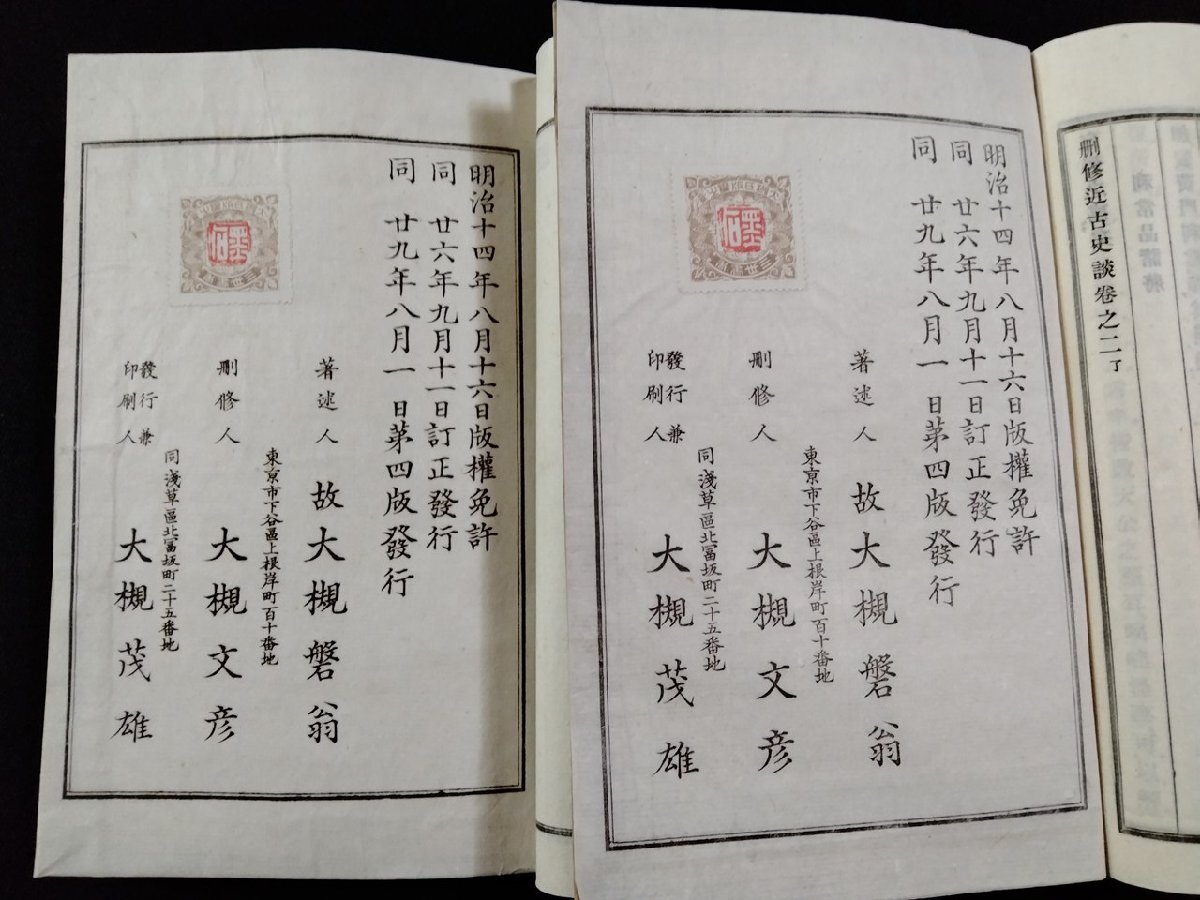 刪修近古史談卷之二了
明治十四年八月十六日版權免許
同廿六年九月十一日訂正發行
同廿九年八月一日第四版發行
著述人故大槻磐翁
東京市下谷區上根岸町百十番地
刪修人大槻文彦
同淺草區北冨坂町二十五番地
發行兼
印刷人大槻茂雄
明治十四年八月十六日版權免許
同廿六年九月十一日訂正發行
同廿九年八月一日第四版發行
著述人故大槻磐翁
東京市下谷區上根岸町百十番地
刪修人大槻文彦
同淺草區北冨坂町二十五番地
發行兼
印刷人大槻茂雄